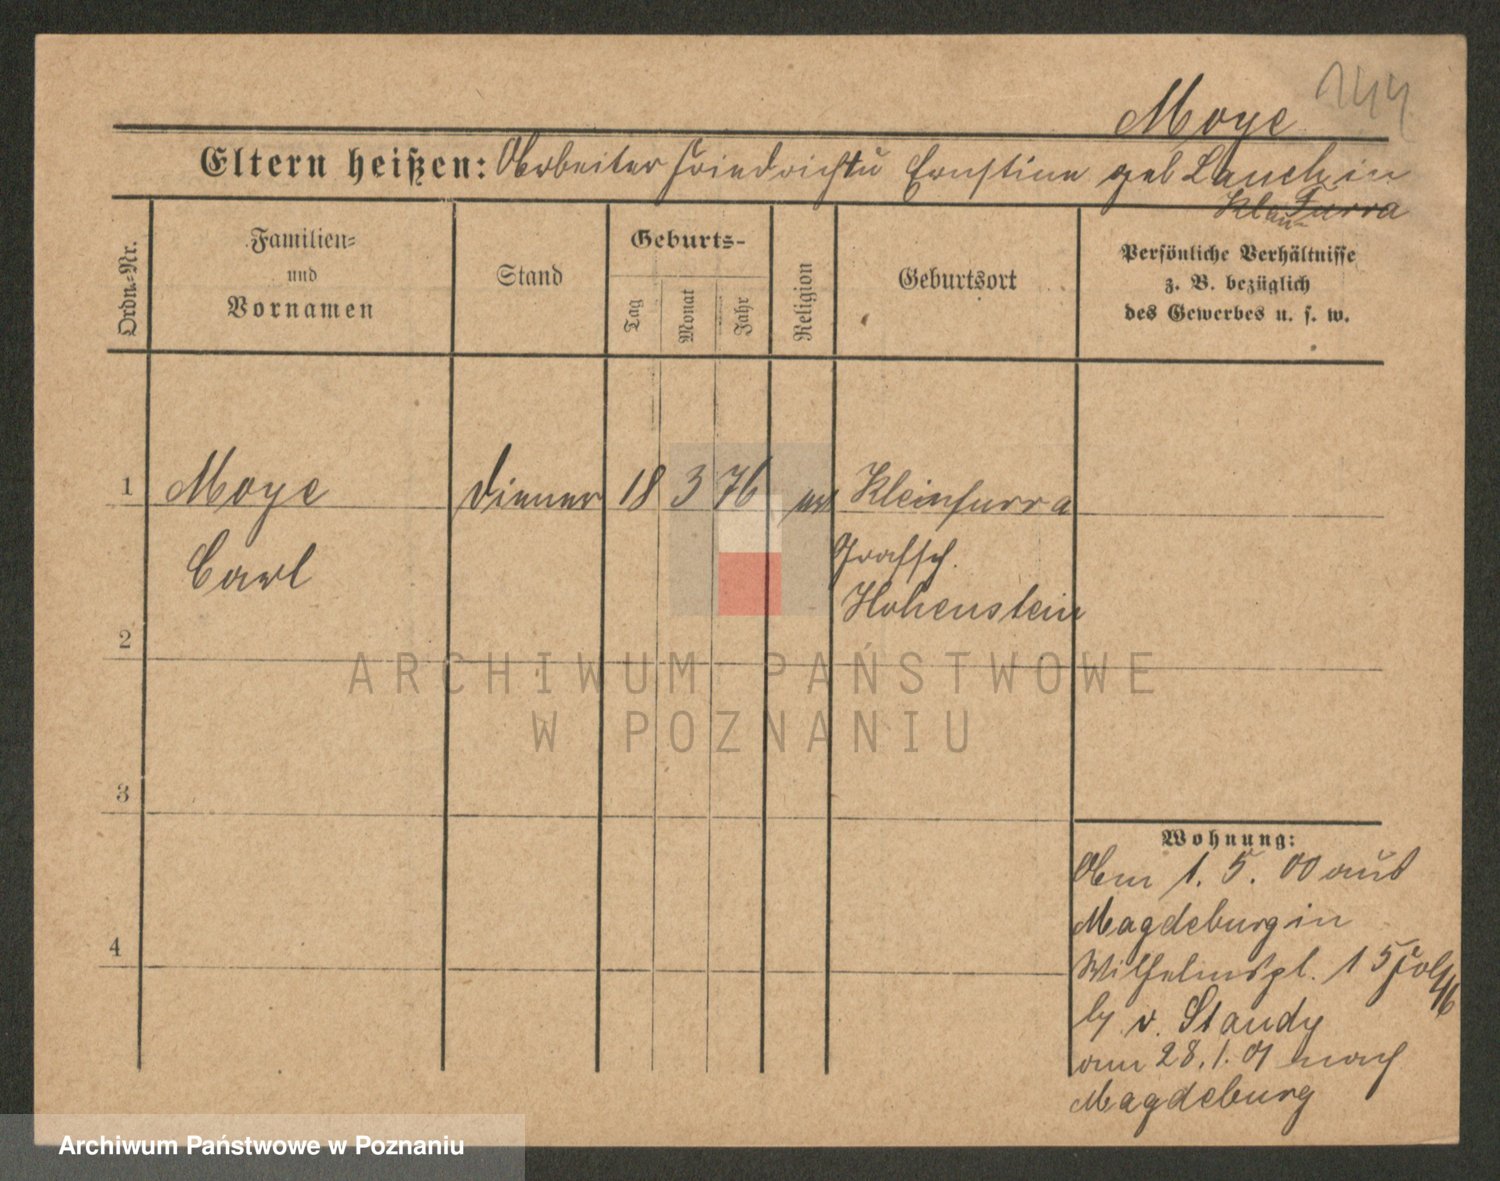 144
Moye
Eltern heißen: Arbeiter Friedrich u Ernstine geb Lauch in
Furra
Ordn.-Nr.
Familien-
und
Vornamen
Stand
Geburts-
Tag
Monat
Jahr
Religion
Geburtsort
Persönliche Verhältnisse
z. B. bezüglich
des Gewerbes u. s. w.
1 Moye Diener 18 3 76 ev Kleinfurra
Carl Grafsch.
Hohenstein
2
3
4
Wohnung:
Am 1. 5. 00 aus
Magdeburg in
Wilhelmspl. 15
by v. Staudy
am 28.1.01 nach
Magdeburg
ARCHIWUM PAŃSTWOWE
W POZNANIU
Archiwum Państwowe w Poznaniu